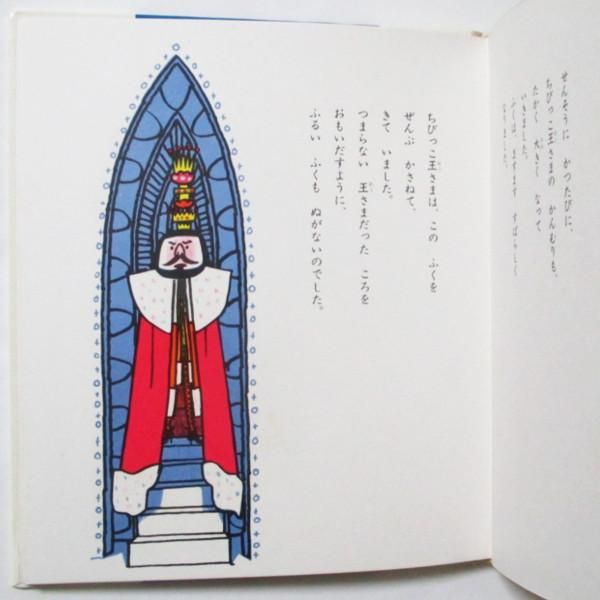 せんそうに かつたびに、
ちびっこ王さまの かんむりも、
たかく 大きく なって
いきました。
ふくは、ますます すばらしく
なりました。
ちびっこ王さまは、この ふくを
ぜんぶ かさねて、
きて いました。
つまらない 王さまだった ころを
おもいだすように、
ふるい ふくも ぬがないのでした。